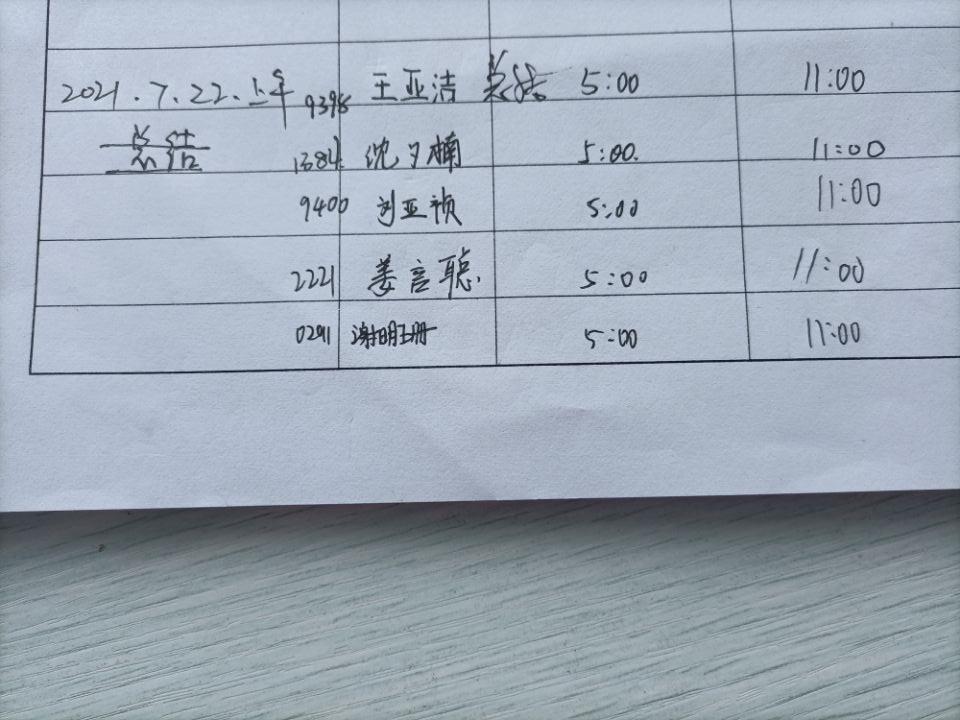 2021.7.22.上午 9398 王亚洁 总结 5:00 11:00
总结 1384 沈夕楠 5:00. 11:00
9400 刘亚祯 5:00 11:00
2221 姜言聪. 5:00 11:00
0291 谢明珊 5:00 11:00